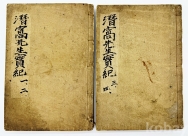 潛窩先生實紀 一、二
潛窩先生實紀 三、四